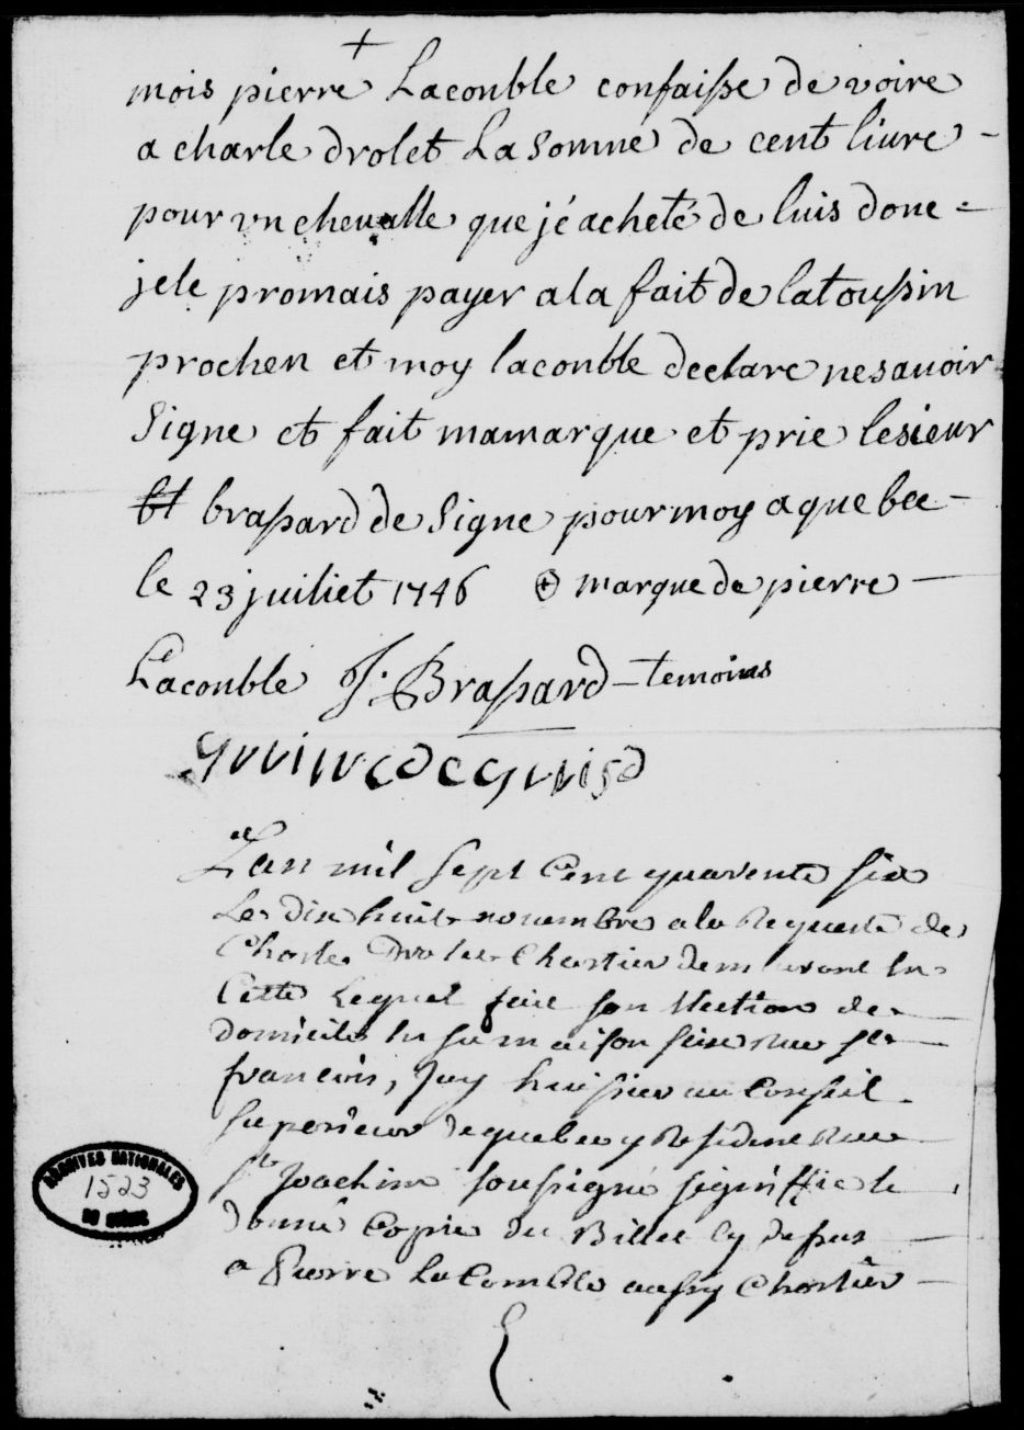 +
mois pierre Laconble confaisse de voire
a charle drolet La Somme de cent liure
pour vn cheualle que jé acheté de luis donc
jele promais payer a la fait de la toussin
prochen et moy laconble declare ne sauoir
Signe et fait mamarque et prie lesieur
brassard de Signe pour moy a quebec
le 23 juiliet 1746 + marque de pierre
Laconble J. Brassard temoins
Lan mil sept Cent quarente six
Le dix huit nouembre a la Requeste de
Charles Drolet Chartier demeurant En
Cette lequel fait son Election de
domicile En sa maison size Rue St
francois, Jay huissier au Conseil
superieur de quebec y Residant Rue
St Joachim soussigné signiffié et
donné Copie du Billet Cy dessus
a Pierre La Comble aussy Chartier
ARCHIVES NATIONALES
1523
DU QUÉBEC